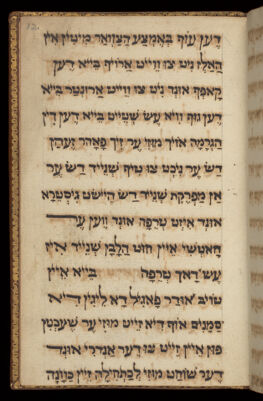 12.
דען עוף באמצע הצוואר מיטין אין
האלז ניט צו ווייט ארויף בייא דען
קאפף אונד ניט צו ווייט ארונטר בייא
דען גוף וויא עש שטייט בייא דען דין
הגרמה אויך מוז ער זיך פאהר זעהן
דש ער ניכט צו טיף שנייד דש ער
אין מפרקת שנייד דש היישט גיסטרא
אונד איזט טרפה אונד ווען ער
חאטשי איין חוט הלבן שנייד איז
עש דאך טרפה בייא איין
טויב אודר פאגיל דא ליגין דיא
סמנים אויף דיא זייט מוז ער שעכטין
פון איין זייט צו דער אנדרי אונד
דער שוחט מוז לכתחילה זיין כוונה